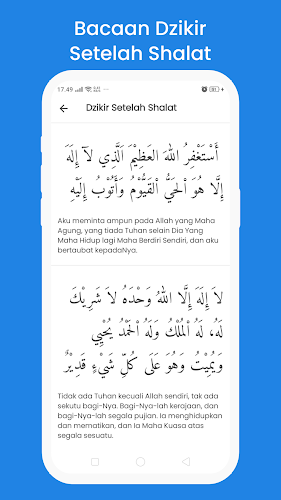 Bacaan Dzikir
Setelah Shalat
17.49
Dzikir Setelah Shalat
أَسْتَغْفِرُ اللهَ الْعَظِيْمَ اَلَّذِي لَآ إِلَهَ
إِلَّا هُوَ الْحَيُّ الْقَيُّوْمُ وَأَتُوْبُ إِلَيْهِ
Aku meminta ampun pada Allah yang Maha
Agung, yang tiada Tuhan selain Dia Yang
Maha Hidup lagi Maha Berdiri Sendiri, dan aku
bertaubat kepadaNya.
لاَ إِلَهَ إِلَّا اللهُ وَحْدَهُ لاَ شَرِيْكَ
لَهُ، لَهُ الْمُلْكُ وَلَهُ الْحَمْدُ يُحْيِي
وَيُمِيْتُ وَهُوَ عَلَى كُلِّ شَيْءٍ قَدِيْرٌ
Tidak ada Tuhan kecuali Allah sendiri, tak ada
sekutu bagi-Nya. Bagi-Nya-lah kerajaan, dan
bagi-Nya-lah segala pujian. Ia menghidupkan
dan mematikan, dan Ia Maha Kuasa atas
segala sesuatu.